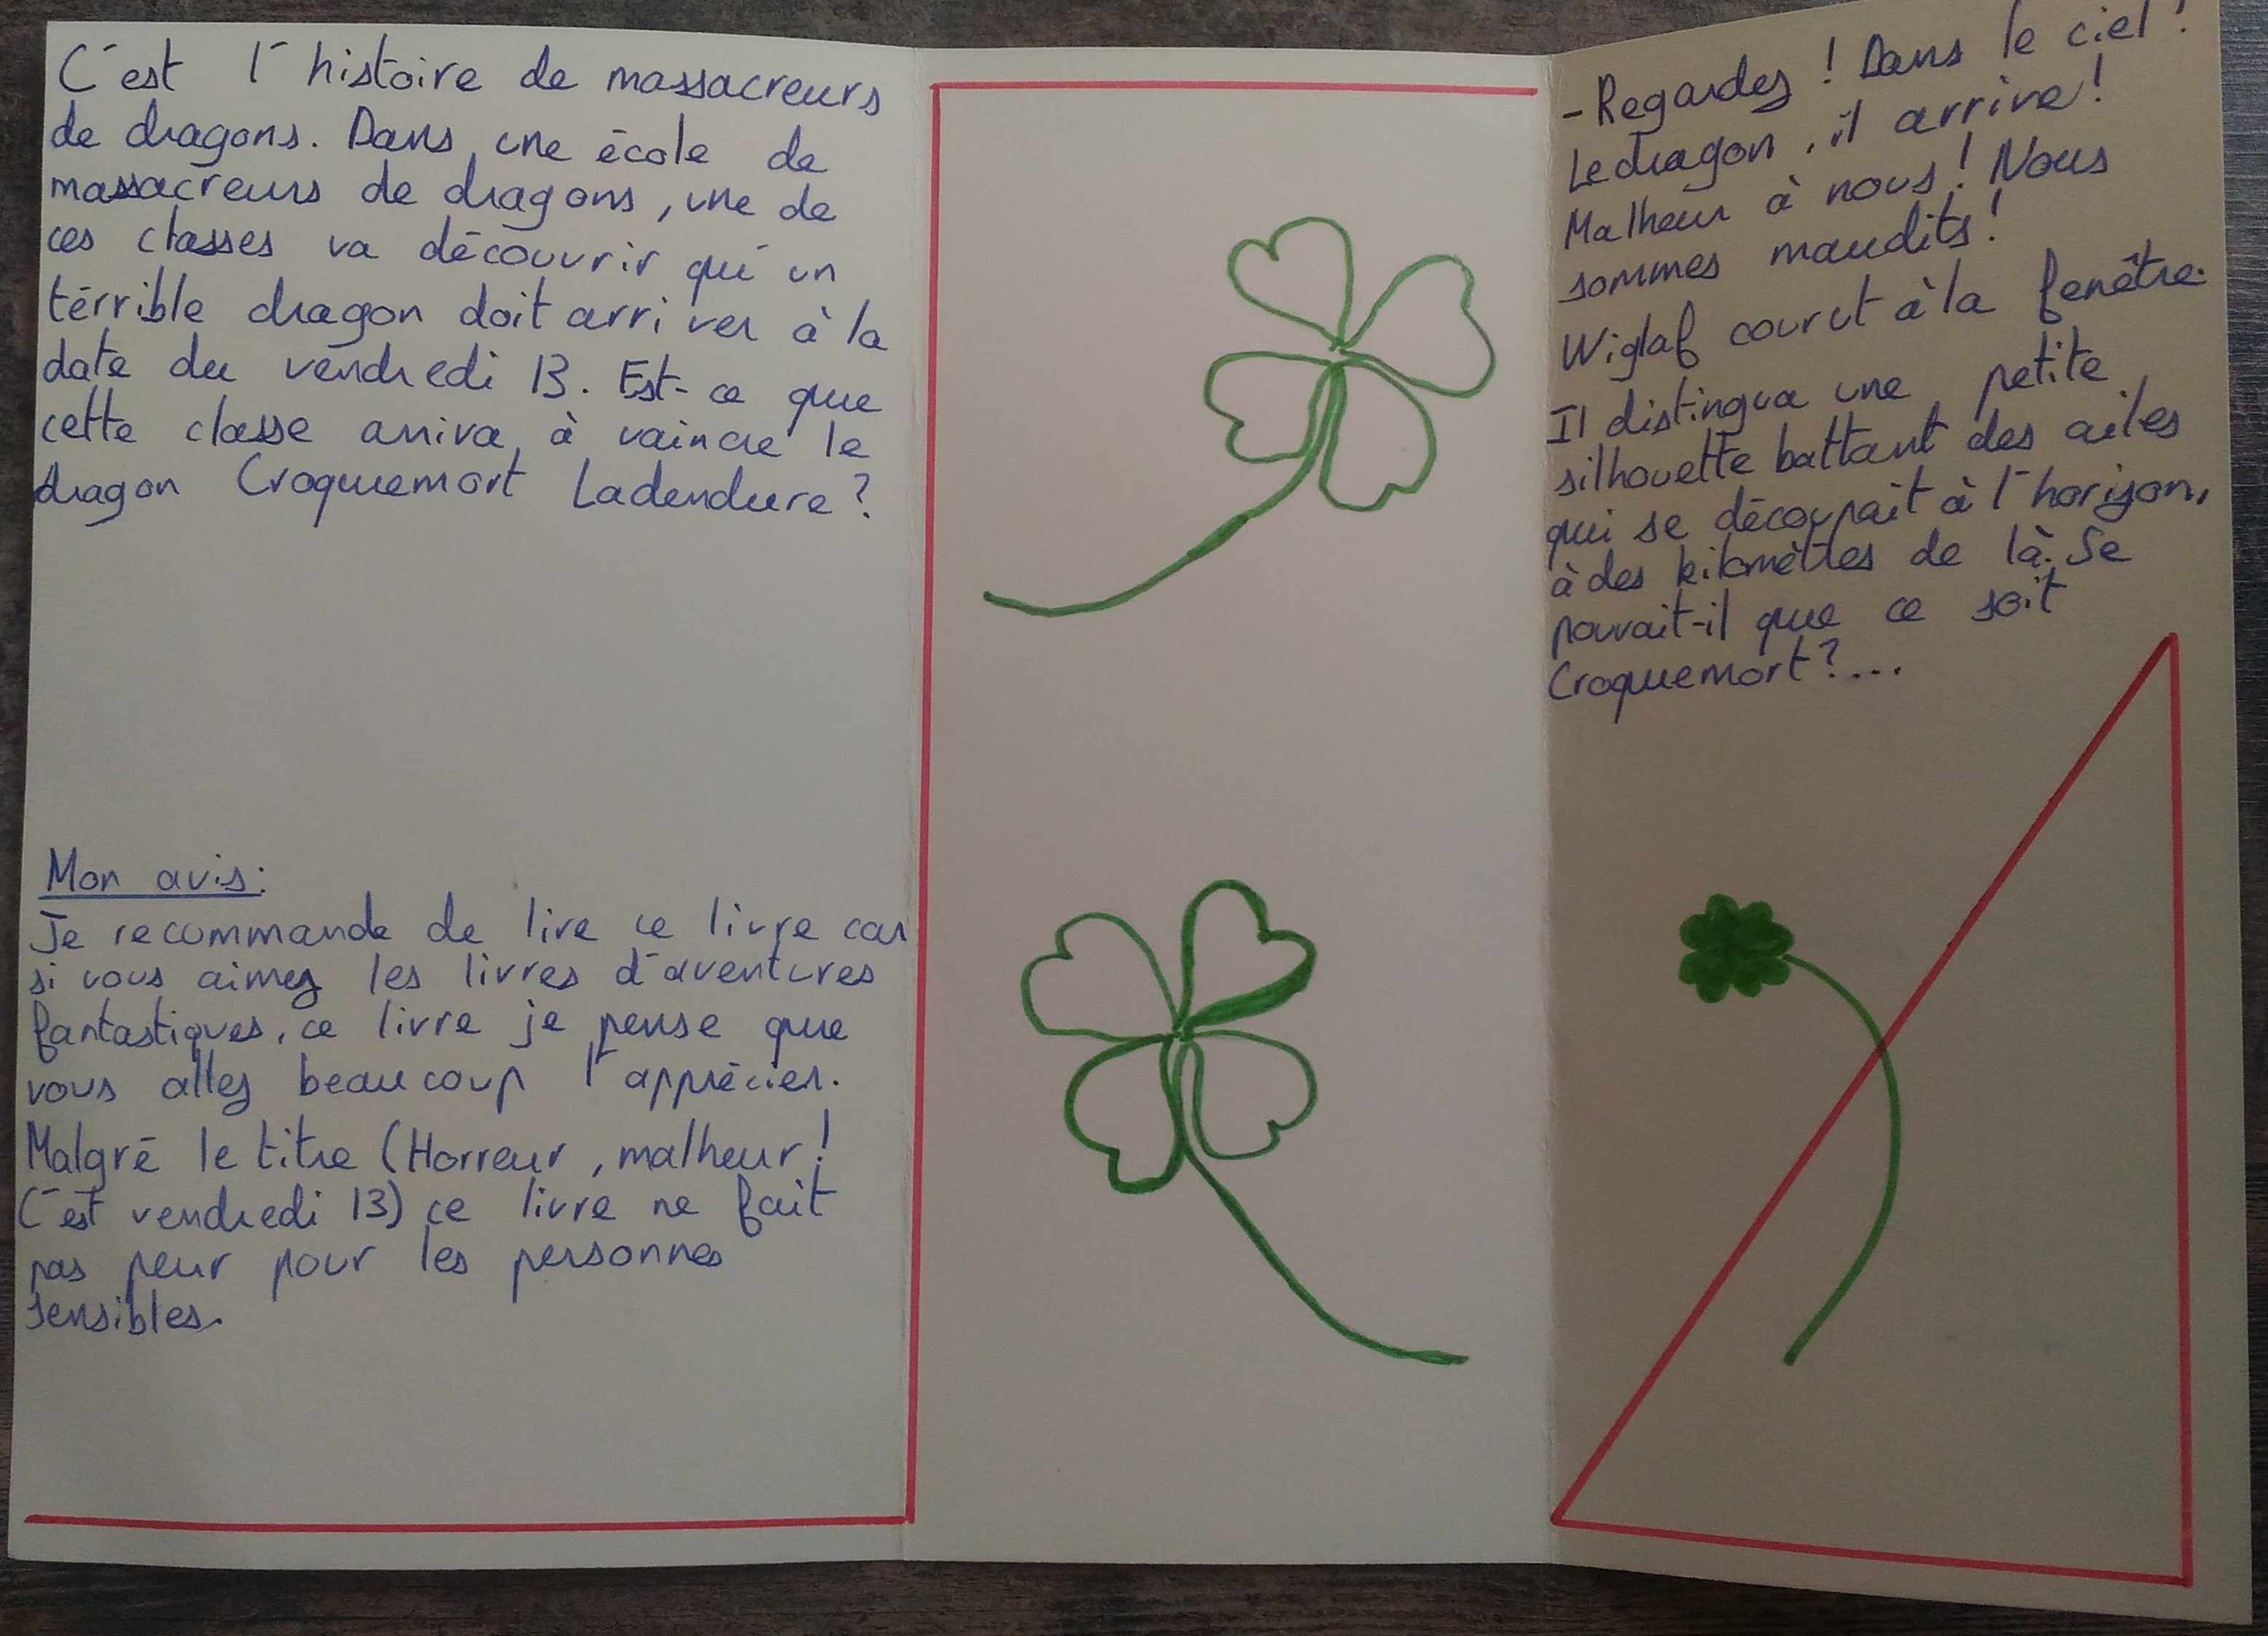 C'est l'histoire de massacreurs
de dragons. Dans une école de
massacreurs de dragons, une de
ces classes va découvrir qu'un
térrible dragon doit arriver à la
date du vendredi 13. Est-ce que
cette classe arriva à vaincre le
dragon Croquemort Ladendure?
Mon avis:
Je recommande de lire ce livre car
si vous aimez les livres d'aventures
fantastiques, ce livre je pense que
vous allez beaucoup l'apprécier.
Malgré le titre (Horreur, malheur!
C'est vendredi 13) ce livre ne fait
pas peur pour les personnes
sensibles.
-Regardez! Dans le ciel!
Le dragon, il arrive!
Malheur à nous! Nous
sommes maudits!
Wiglaf courut à la fenêtre.
Il distingua une petite
silhouette battant des ailes
qui se découpait à l'horizon,
à des kilomètres de là. Se
pouvait-il que ce soit
Croquemort?...